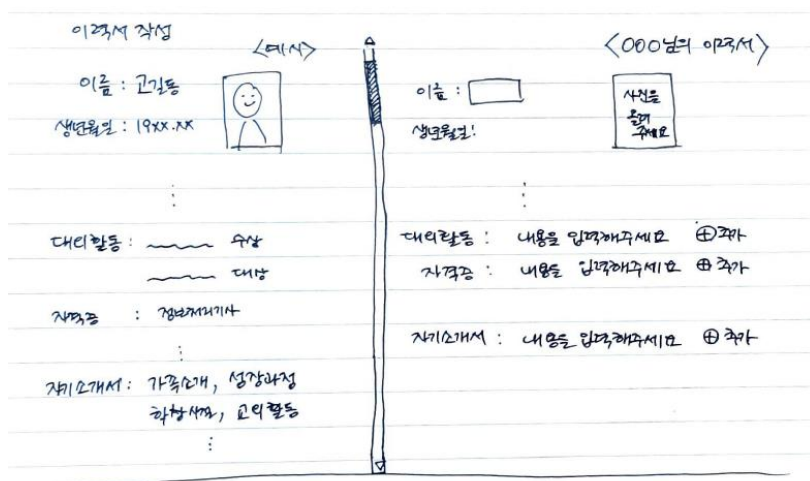 이력서 작성
<예시>
이름 : 고길동
생년월일 : 19xx.xx
대외활동 : 수상
대상
자격증 : 정보처리기사
자기소개서 : 가족소개, 성장과정
교외활동
<OOO님의 이력서>
이름 :
사진을
올려
주세요
생년월일:
대외활동 : 내용을 입력해주세요 ⊕추가
자격증 : 내용을 입력해주세요 ⊕추가
자기소개서 : 내용을 입력해주세요 ⊕추가